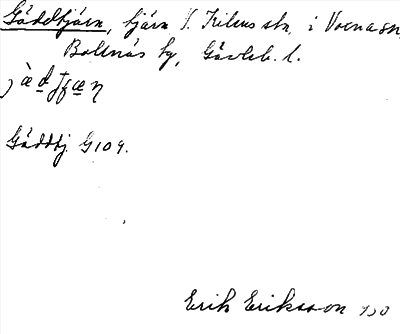 Gäddtjärn, tjärn S. Kilens stn, i Voxna sn,
Bollnäs hg, Gävleb. l.
Gäddtj. G109.
Erik Eriksson 930